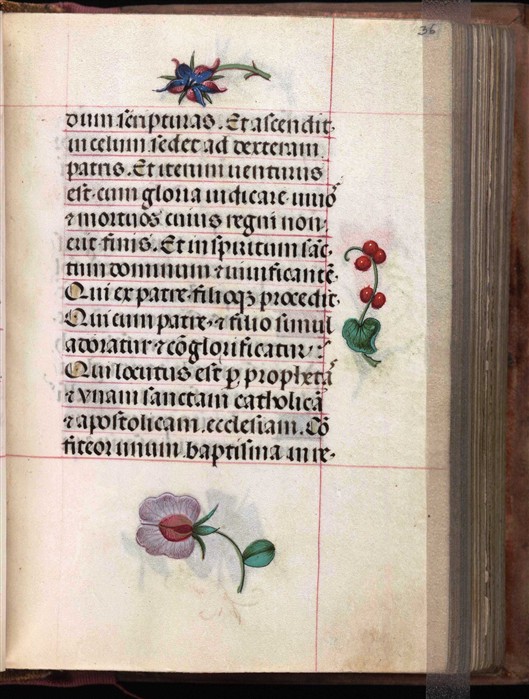 36
dum scripturas. Et ascendit
in celum sedet ad dexteram
patris. Et iterum venturus
est cum gloria iudicare viuo
⁊ mortuos cuius regni non
erit finis. Et in spiritum sāc
tum dominum ⁊ viuificantē.
Qui ex patre filioqꝫ procedit.
Qui cum patre ⁊ filio simul
adoratur ⁊ cōglorificatur:
Qui locutus est ꝑ prophetā
⁊ vnam sanctam catholicā
⁊ apostolicam ecclesiam. Cō
fiteor unum baptisma in re-